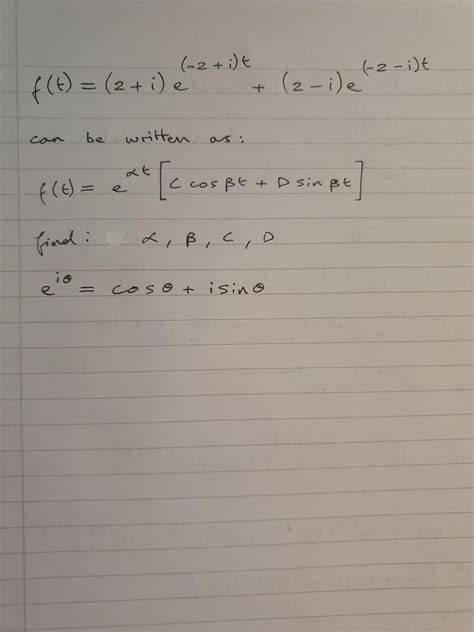 f(t) = (2+i) e^{(-2+i)t} + (2-i) e^{(-2-i)t}
can be written as:
f(t) = e^{αt} [C cos βt + D sin βt]
find: α, β, C, D
e^{iθ} = cosθ + i sinθ